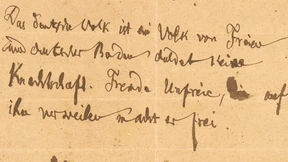 Das deutsche Volk ist ein Volk von Freien
und deutscher Boden duldet keine
Knechtschaft. Fremde Unfreie, die auf
ihm verweilen macht er frei.